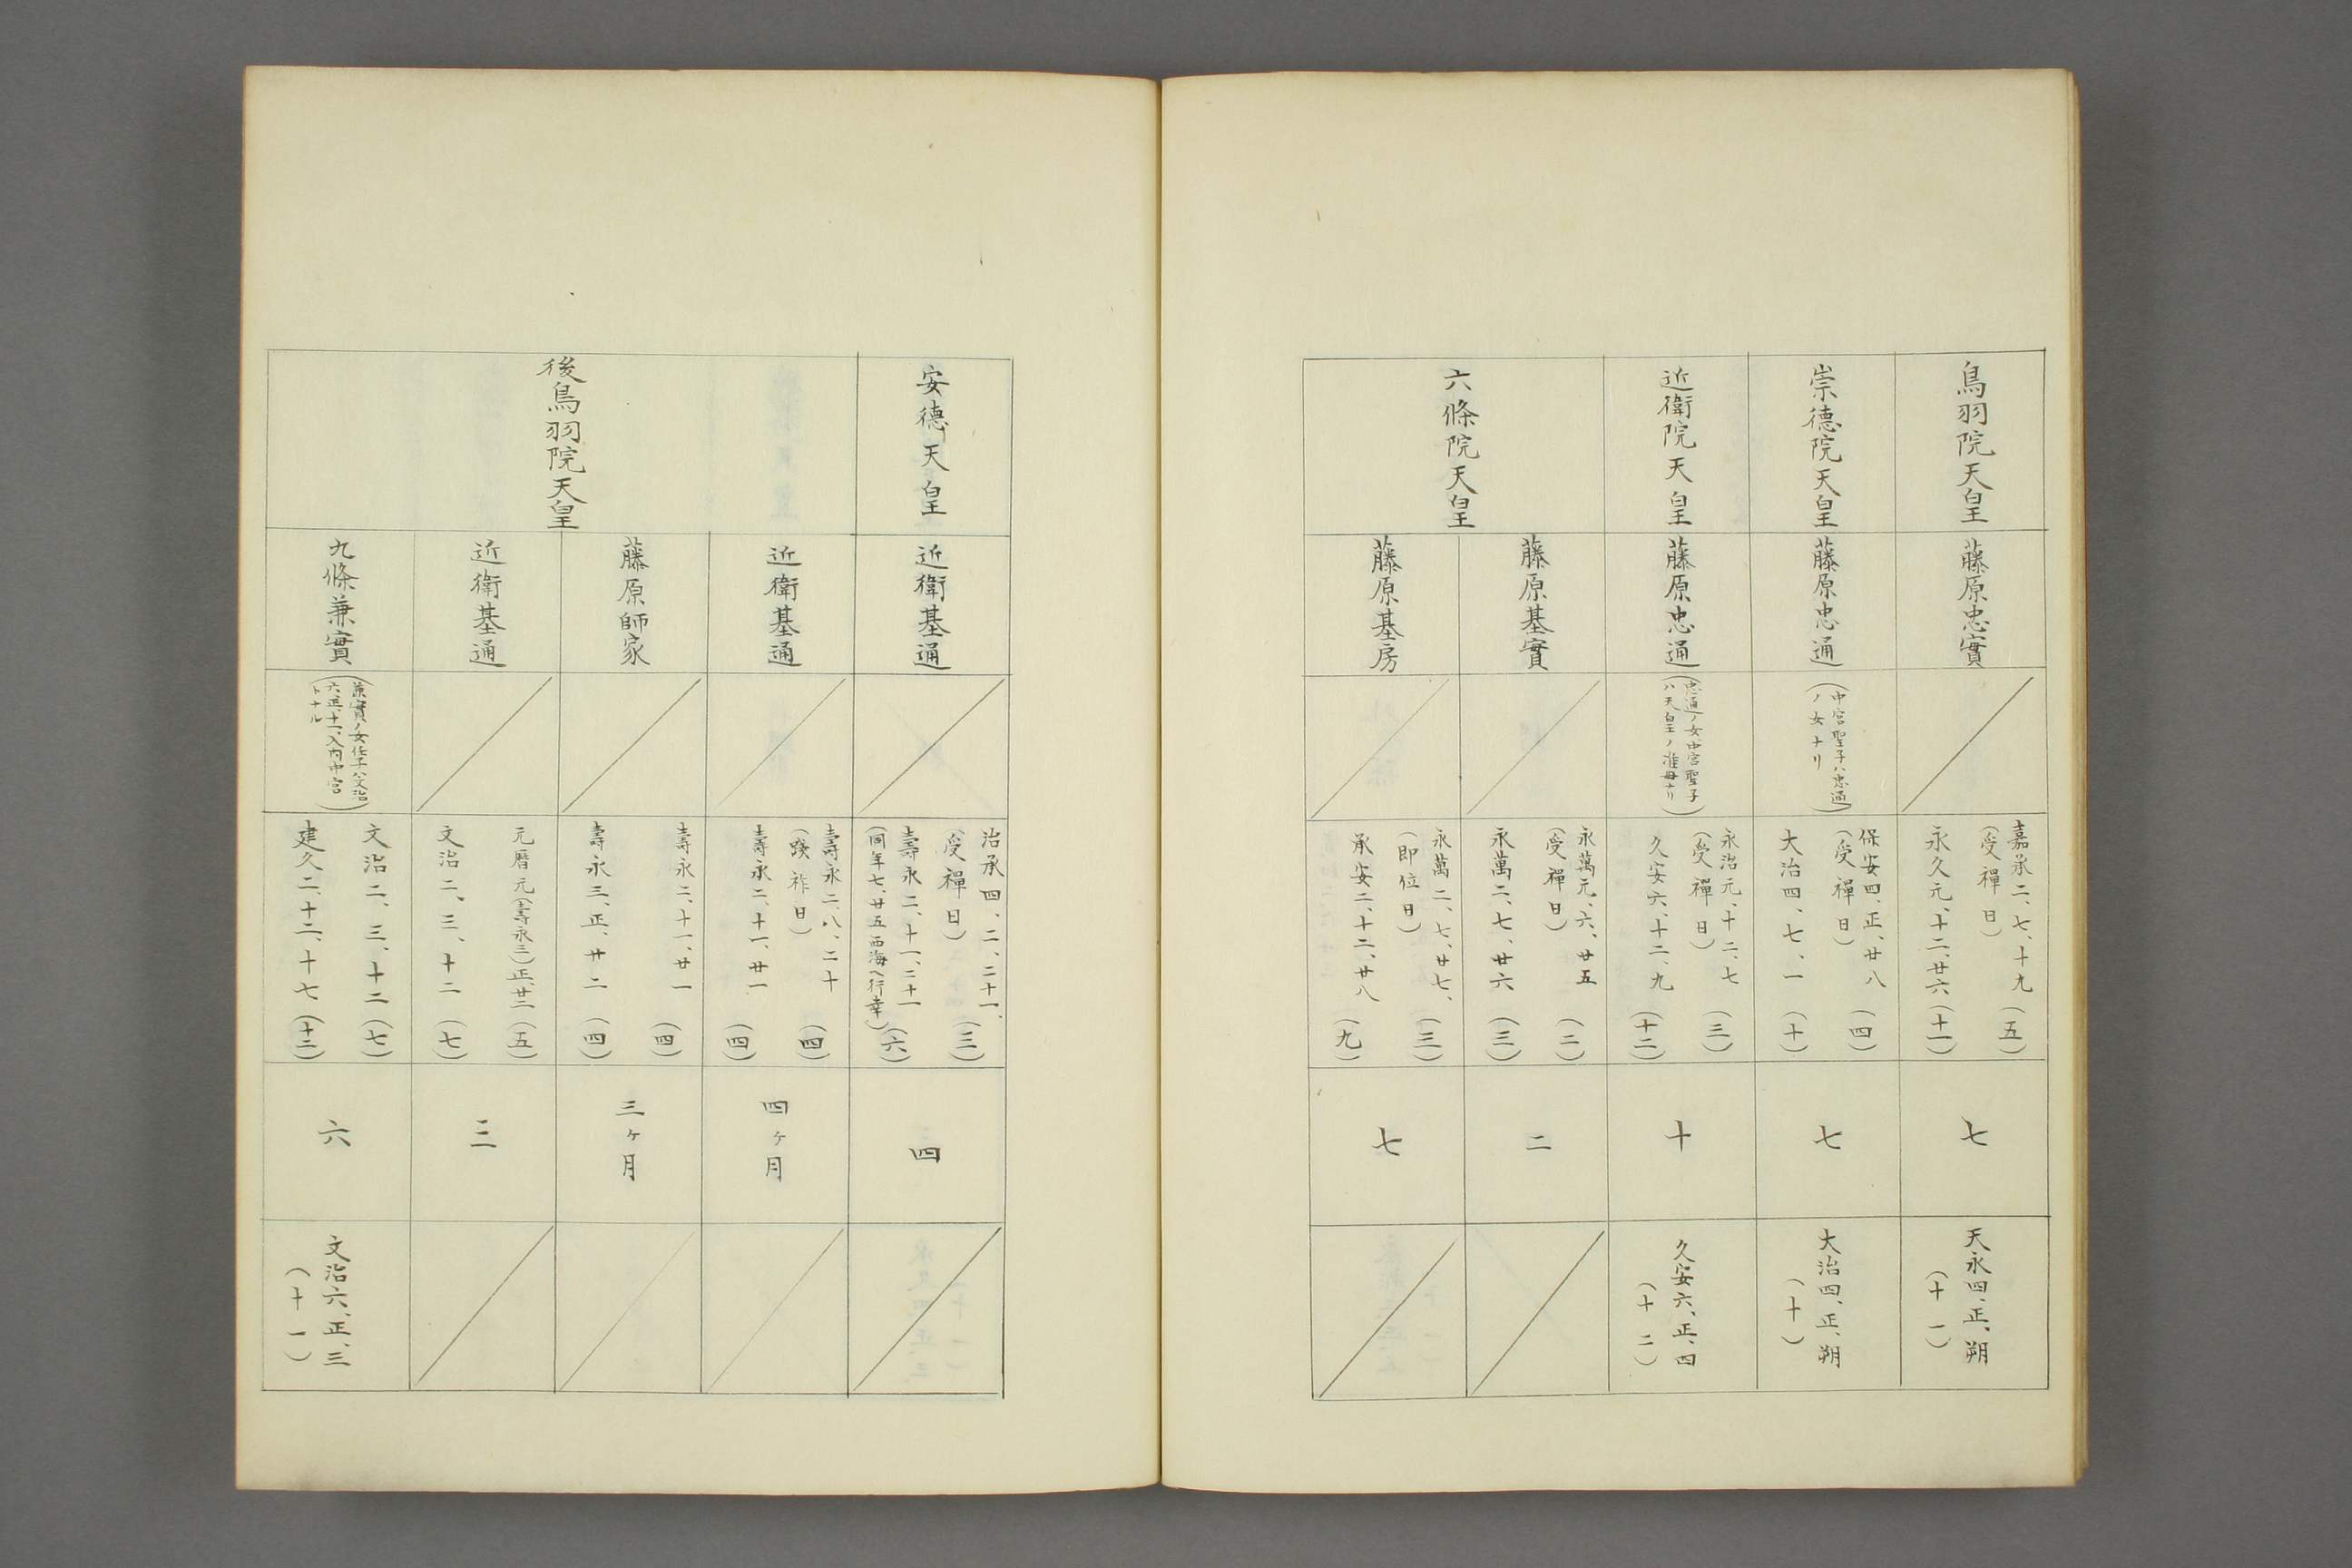 鳥羽院天皇
藤原忠實
嘉承二、七、十九（五）
（受禪日）
永久元、十二、廿六（十一）
七
天永四、正、朔
（十一）
崇德院天皇
藤原忠通
（中宮聖子ハ忠通
ノ女ナリ）
保安四、正、廿八（四）
（受禪日）
大治四、七、一（十）
七
大治四、正、朔
（十）
近衛院天皇
藤原忠通
（忠通ノ女中宮聖子
ハ天皇ノ准母ナリ）
永治元、十二、七（三）
（受禪日）
久安六、十二、九（十二）
十
久安六、正、四
（十二）
六條院天皇
藤原基實
永萬元、六、廿五（二）
（受禪日）
永萬二、七、廿六（三）
二
藤原基房
永萬二、七、廿七、（三）
（即位日）
承安二、十二、廿八（九）
七
安德天皇
近衛基通
治承四、二、二十一、（三）
（受禪日）
壽永二、十一、二十一（六）
（同年七、廿五西海ヘ行幸）
四
後鳥羽院天皇
近衛基通
壽永二、八、二十（四）
（踐祚日）
壽永二、十一、廿一（四）
四ヶ月
藤原師家
壽永二、十一、廿一（四）
壽永三、正、廿二（四）
三ヶ月
近衛基通
元曆元（壽永三）正、廿二（五）
文治二、三、十二（七）
三
九條兼實
（兼實ノ女任子ハ文治
六、正、十一、入内中宮
トナル）
文治二、三、十二（七）
建久二、十二、十七（十二）
六
文治六、正、三
（十一）